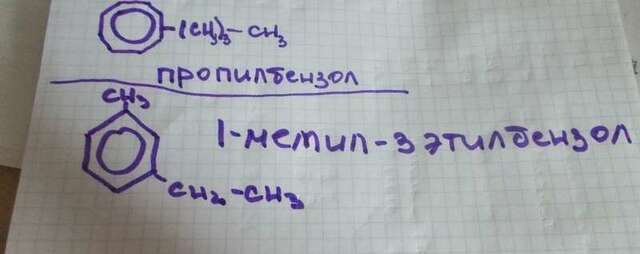 -(CH)3-CH3
пропилбензол
CH3
1-метил-3 этилбензол
CH2-CH3